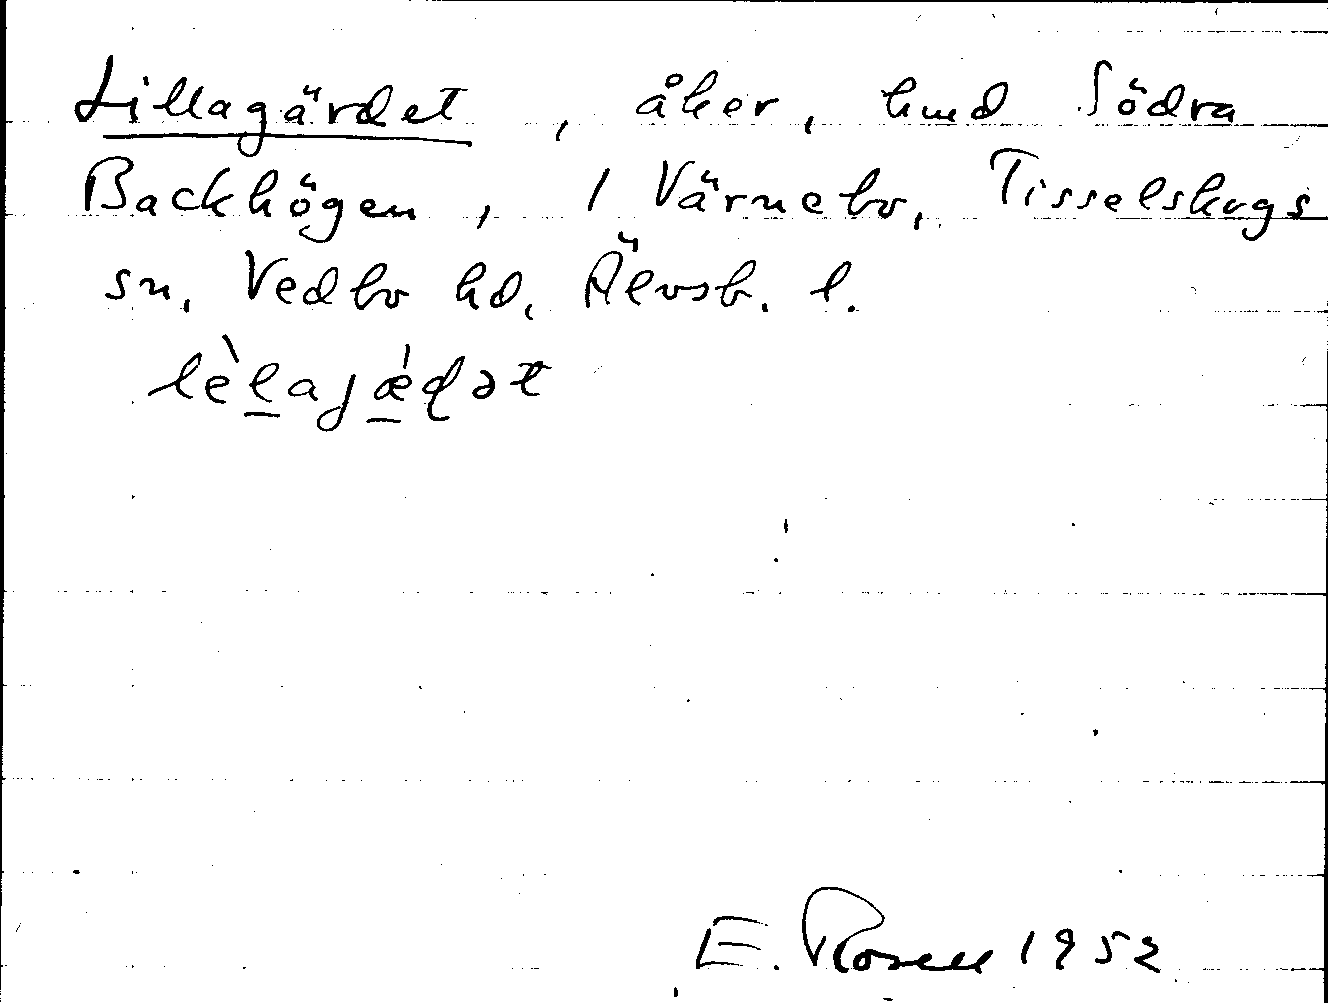 Lillagärdet, åker, hmd Södra
Backhögen, 1 Värnebo, Tisselskogs
sn, Vedbo hd, Älvsb. l.
lèlajǽḍət
E. Rosell 1952